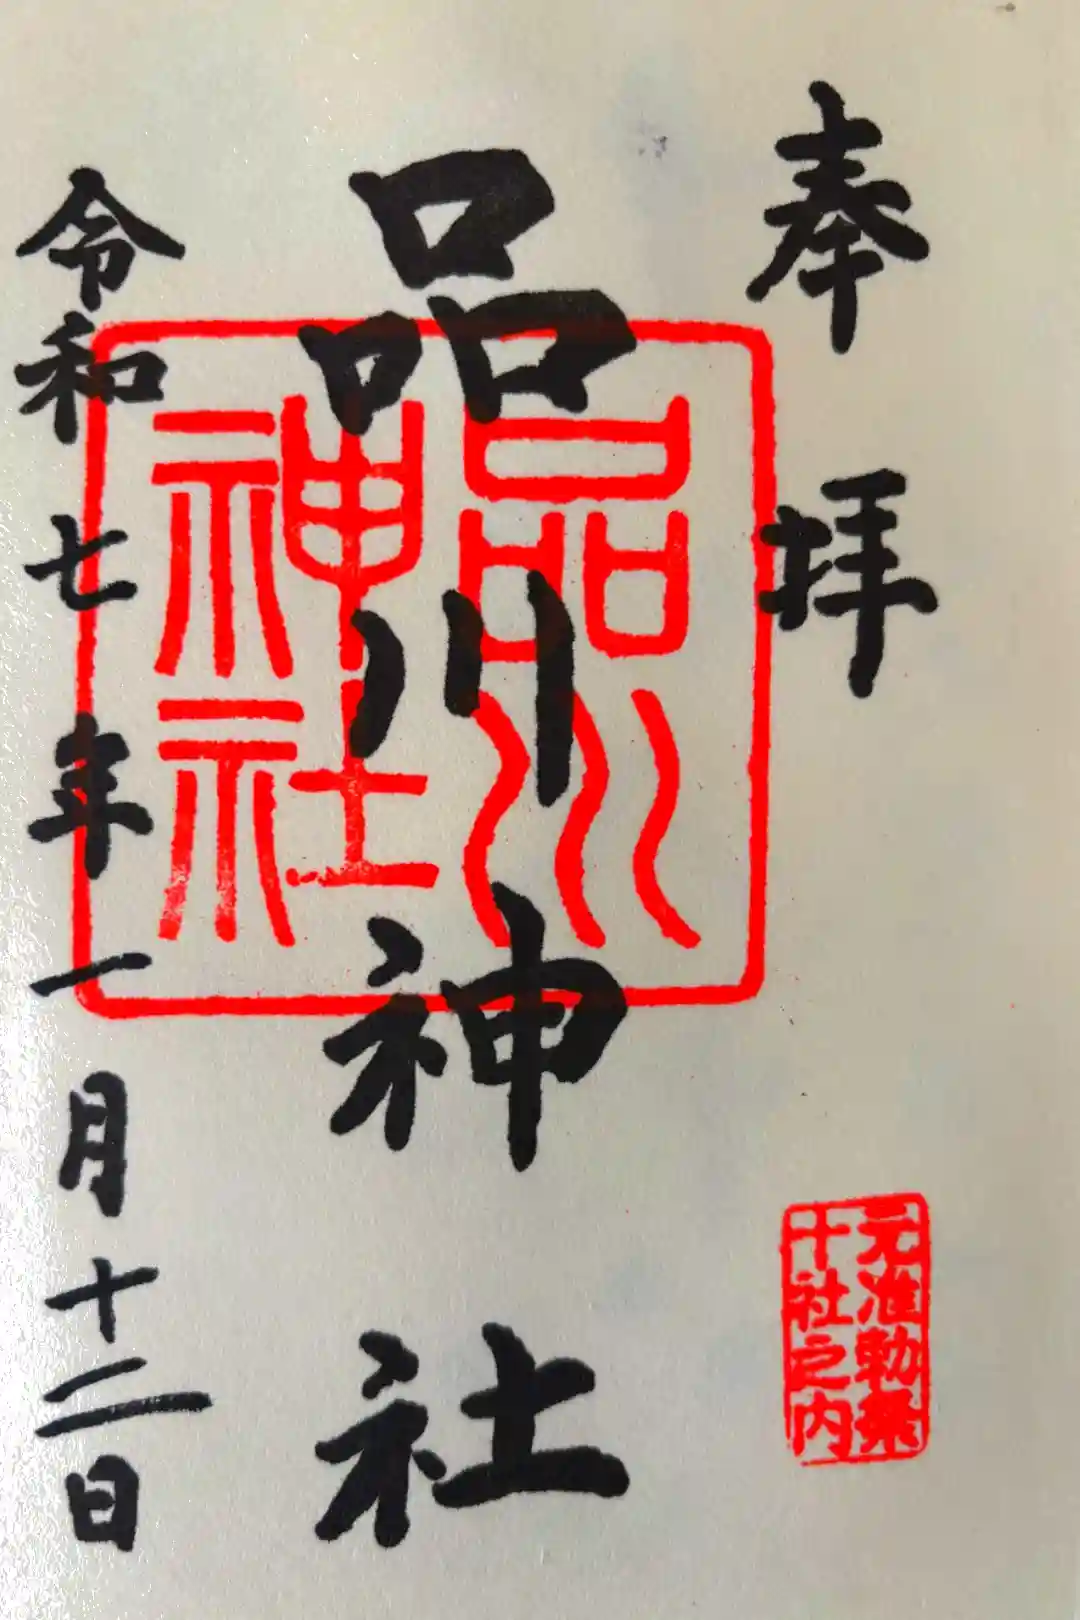 奉拝
元准勅祭
十社之内
品川神社
品川
神社
令和七年一月十二日